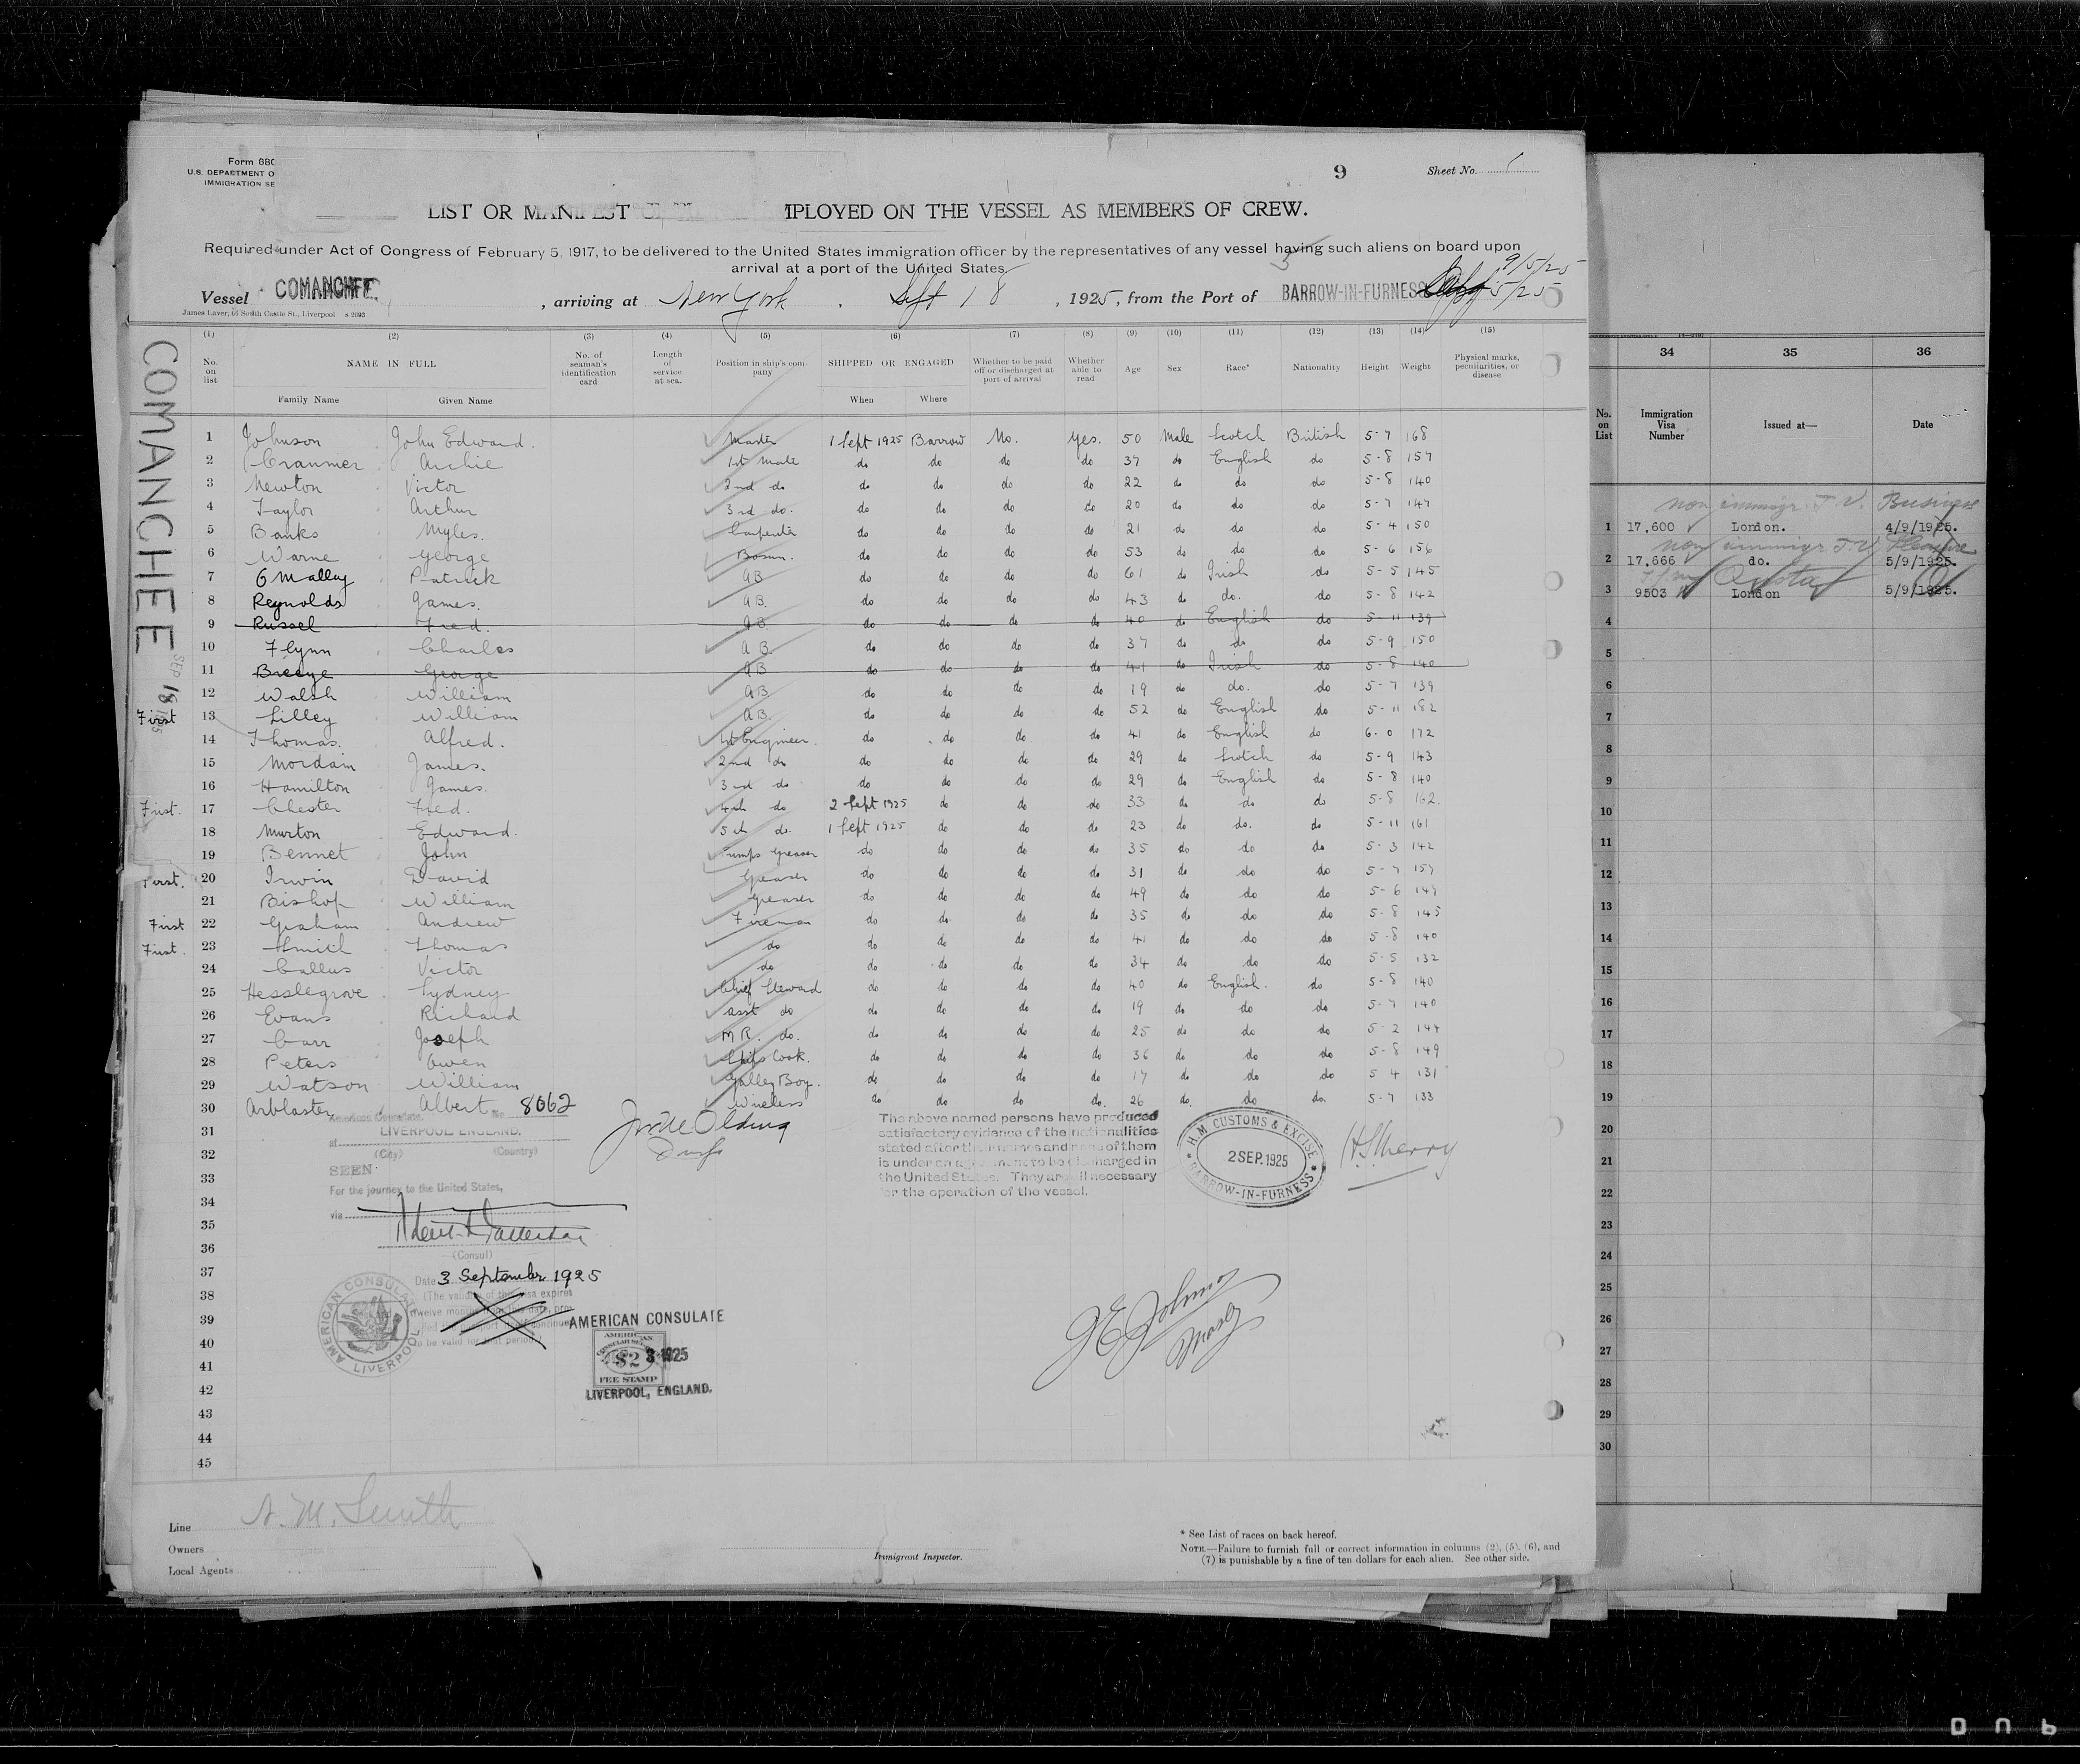 Form 680
U.S. DEPARTMENT O
IMMIGRATION SE
9
Sheet No. 1
LIST OR MANIFEST MPLOYED ON THE VESSEL AS MEMBERS OF CREW.
Required under Act of Congress of February 5, 1917, to be delivered to the United States immigration officer by the representatives of any vessel having such aliens on board upon
arrival at a port of the United States
9/5/25
Vessel COMANCHEE, arriving at New York, Sept 18, 1925, from the Port of BARROW-IN-FURNESS 5/25
James Laver, 66 South Castle St., Liverpool
COMANCHEE
SEP 18 1925
(1) (2) (3) (4) (5) (6) (7) (8) (9) (10) (11) (12) (13) (14) (15)
No. on list. NAME IN FULL Family Name Given Name No. of seaman's identification card Length of service at sea. Position in ship's company SHIPPED OR ENGAGED When Where Whether to be paid off or discharged at port of arrival Whether able to read Age Sex Race* Nationality Height Weight Physical marks, peculiarities, or disease
1 Johnson John Edward. Master 1 Sept 1925 Barrow No. Yes. 50 Male Scotch British 5-7 168
2 Cranmer Archie 1st Mate do do do do 37 do English do 5-8 157
3 Newton Victor 2nd do do do do do 22 do do do 5-8 140
4 Taylor Arthur 3rd do. do do do do 20 do do do 5-7 147
5 Banks Myles. Carpenter do do do do 21 do do do 5-4 150
6 Warne George Bosun. do do do do 53 do do do 5-6 156
7 O Malley Patrick AB do do do do 61 do Irish do 5-5 145
8 Reynolds James. AB. do do do do 43 do do. do 5-8 142
9 Russel Fred. AB. do do do do 40 do English do 5-11 139
10 Flynn Charles AB. do do do do 37 do do do 5-9 150
11 Breeye George AB do do do do 41 do Irish do 5-8 140
12 Walsh William AB do do do do 19 do do. do 5-7 139
First 13 Lilley William AB. do do do do 52 do English do 5-11 182
14 Thomas. Alfred. 1st Engineer. do do do do 41 do English do 6-0 172
15 Mordain James. 2nd do do do do do 29 do Scotch do 5-9 143
16 Hamilton James. 3rd do do do do do 29 do English do 5-8 140
First. 17 Chester Fred. 4th do 2 Sept 1925 do do do 33 do do do 5-8 162.
18 Murton Edward. 5th do. 1 Sept 1925 do do do 23 do do. do 5-11 161
19 Bennet John Pumps Greaser do do do do 35 do do do 5-3 142
First. 20 Irwin David Greaser do do do do 31 do do do 5-7 157
21 Bishop William Greaser do do do do 49 do do do 5-6 147
First 22 Graham Andrew Fireman do do do do 35 do do do 5-8 145
First. 23 Smith Thomas do do do do do 41 do do do 5-8 140
24 Callus Victor do do do do do 34 do do do 5-5 132
25 Hesslegrove Sydney Chief Steward do do do do 40 do English. do 5-8 140
26 Evans Richard asst do do do do do 19 do do do 5-7 140
27 Carr Joseph M.R. do. do do do do 25 do do do 5-2 144
28 Peters Owen Ships Cook. do do do do 36 do do do 5-8 149
29 Watson William Galley Boy. do do do do 17 do do do 5 4 131
30 Arblaster Albert Wireless do do do do. 26 do. do do. 5-7 133
31
32
33
34
35
36
37
38
39
40
41
42
43
44
45
American Consulate. No. 8062
LIVERPOOL ENGLAND.
at
(City) (Country)
SEEN
For the journey to the United States,
via
(Consul)
Date 3 September 1925
AMERICAN CONSULATE LIVERPOOL
AMERICAN CONSULATE
AMERICAN
$2
FEE STAMP
3 1925
LIVERPOOL, ENGLAND.
The above named persons have produced
satisfactory evidence of the nationalities
stated after their names and none of them
is under an agreement to be discharged in
the United States. They are all necessary
for the operation of the vessel.
H.M. CUSTOMS & EXCISE
2 SEP. 1925
BARROW-IN-FURNESS
J E Johnson
Line
Owners
Local Agents
Immigrant Inspector.
* See List of races on back hereof.
NOTE.—Failure to furnish full or correct information in columns (2), (5), (6), and
(7) is punishable by a fine of ten dollars for each alien. See other side.
34 35 36
No. on List Immigration Visa Number Issued at— Date
non immigr. T.V. Business
1 17,600 London. 4/9/1925.
non immigr T.V. Pleasure
2 17,666 do. 5/9/1925.
3 9503 London 5/9/1925.
4
5
6
7
8
9
10
11
12
13
14
15
16
17
18
19
20
21
22
23
24
25
26
27
28
29
30